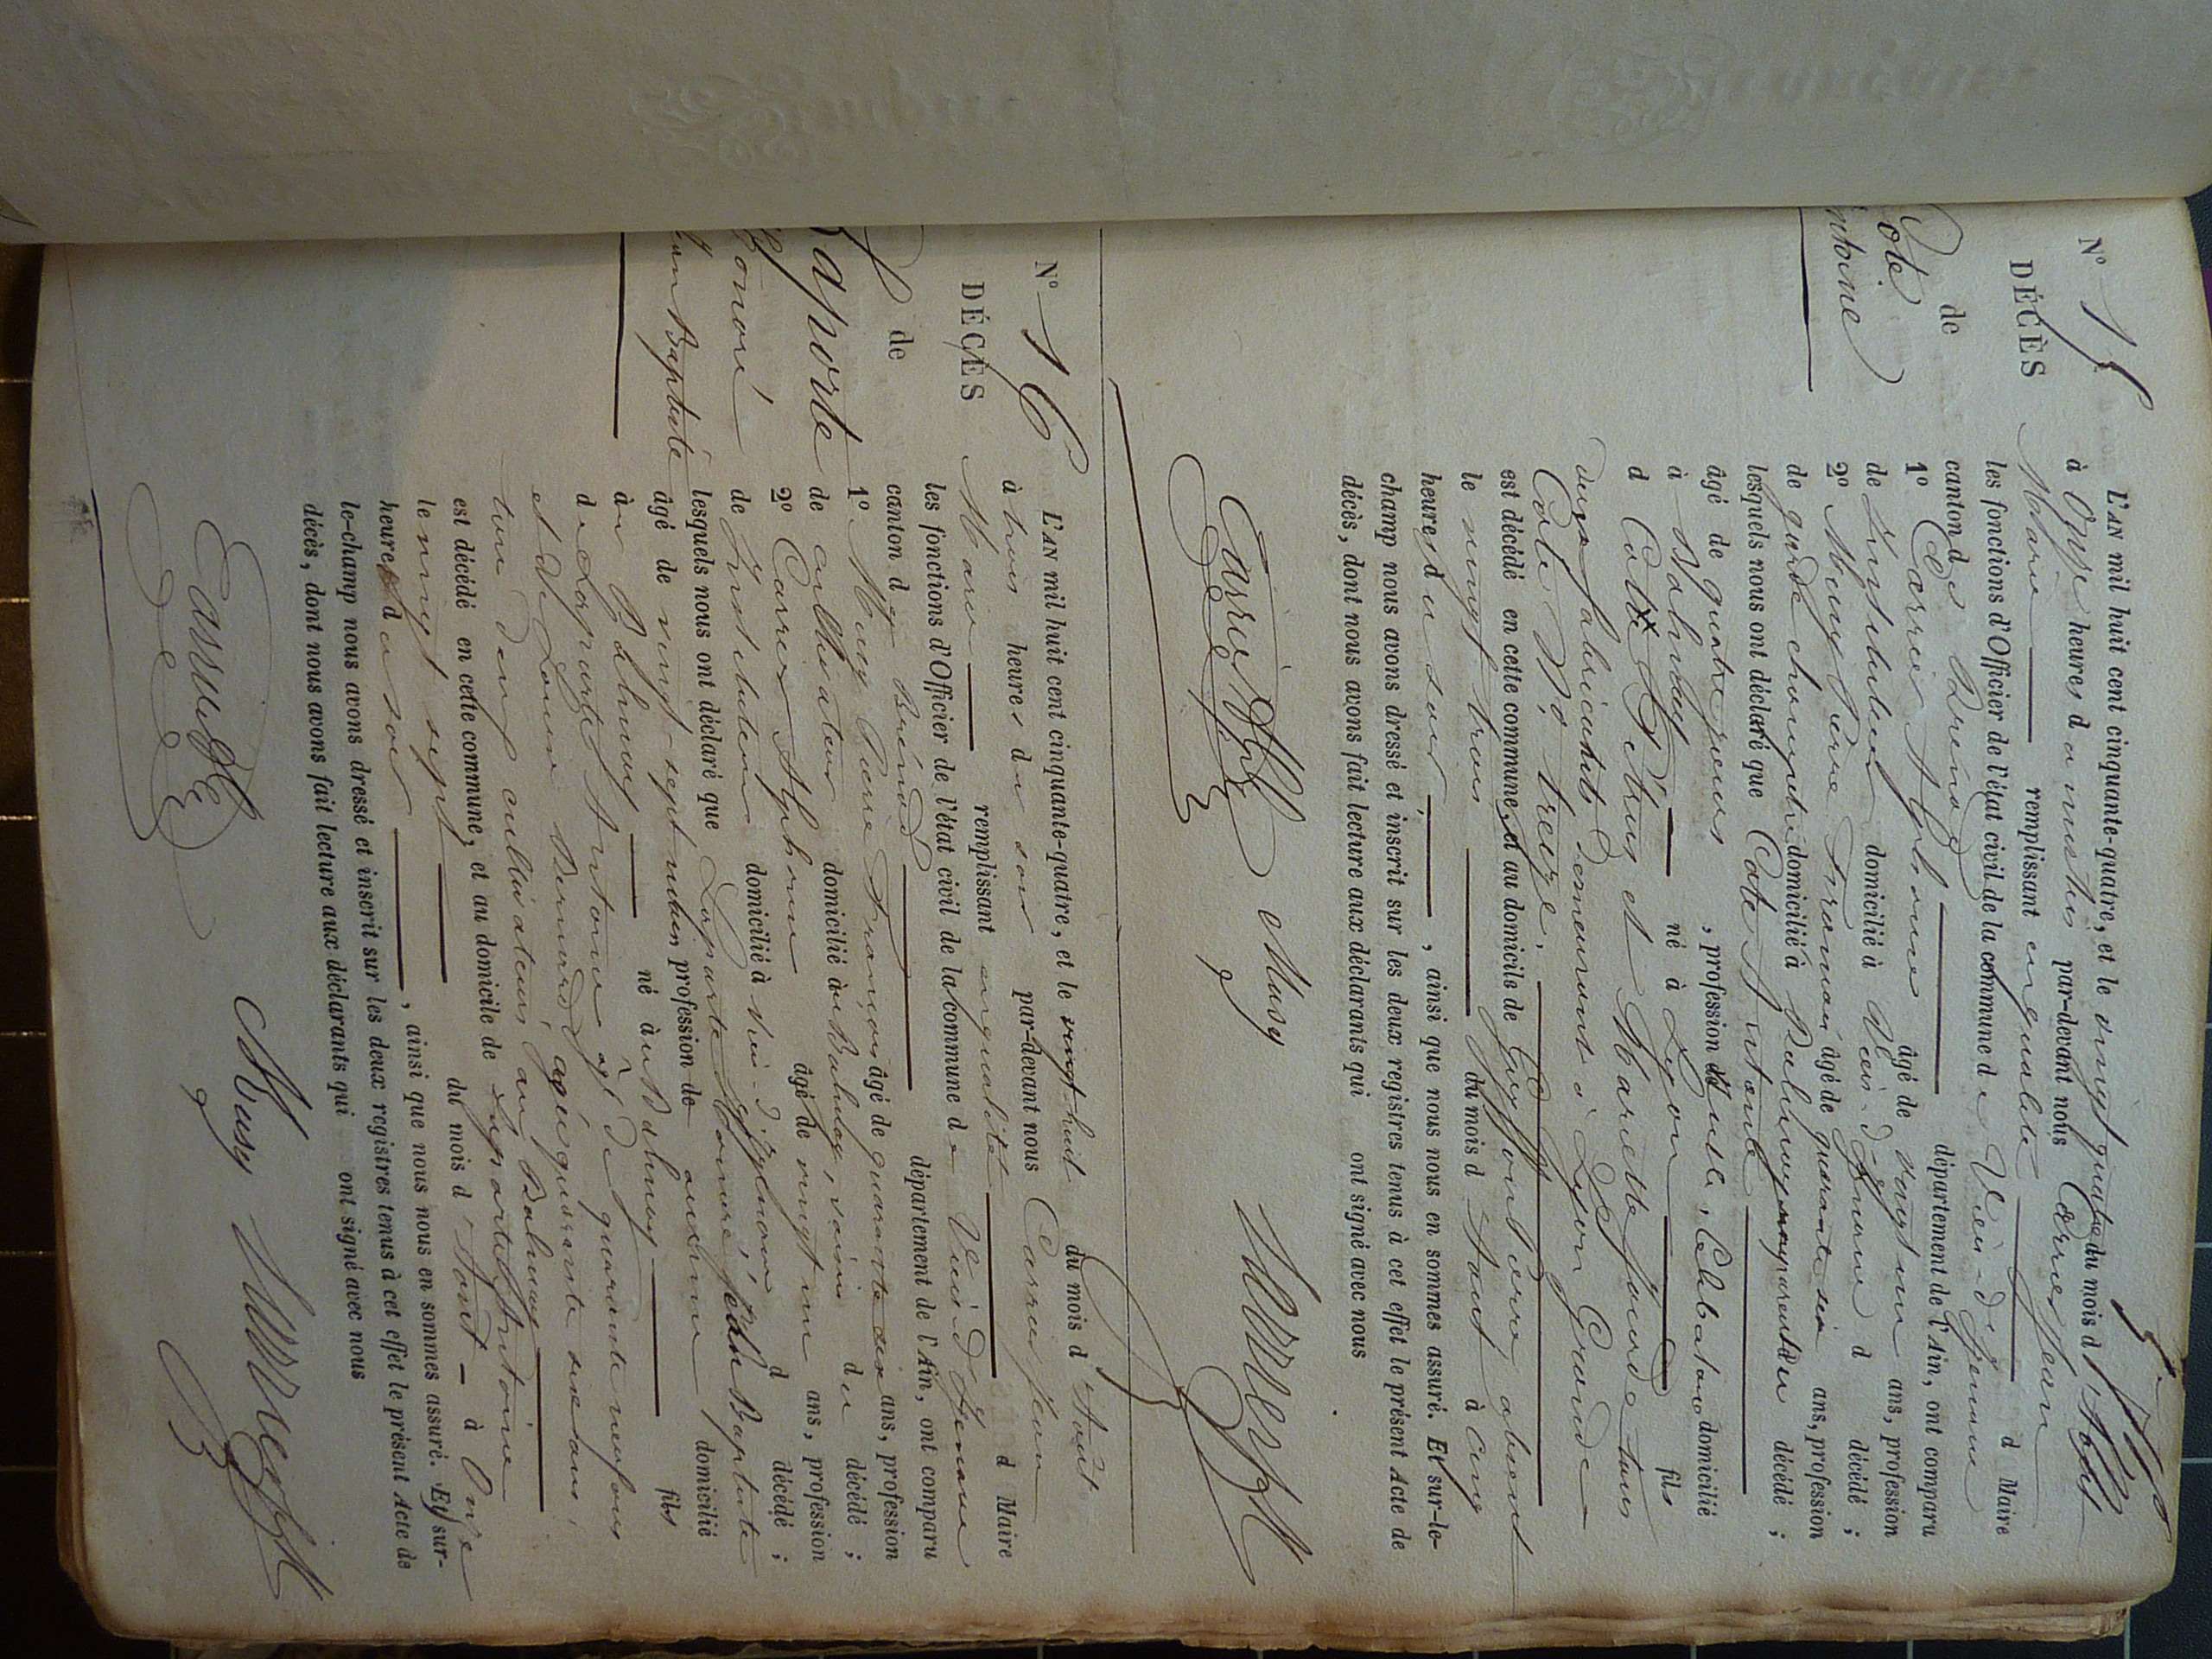 N° 15
DÉCÈS
de
Cote
Antoine
L'AN mil huit cent cinquante-quatre, et le vingt quatre du mois d'Août
à Onze heures du matin par-devant nous Carrier Jean
Maire remplissant en qualité d Maire
les fonctions d'Officier de l'état civil de la commune de Vieu-d'Izenave
canton de Brénod département de l'Ain, ont comparu
1° Carrier Alphonse âgé de vingt un ans, profession
de Instituteur domicilié à Vieu-d'Izenave d décédé ;
2° Musy Pierre François âgé de quarante six ans, profession
de garde champêtre domicilié à Balmay, non parent du décédé ;
lesquels nous ont déclaré que Cote Antoine
âgé de quatre jours , profession d Célibataire domicilié
à Balmay né à Lyon fils
d Cote Pétrus et Mariette tous
deux fabricants demeurant à Lyon Grande
Côte N° treize,
est décédé en cette commune, et au domicile de absent
le vingt trois du mois d'Août à Cinq
heures du soir , ainsi que nous nous en sommes assuré. Et sur-le-
champ nous avons dressé et inscrit sur les deux registres tenus à cet effet le présent Acte de
décès, dont nous avons fait lecture aux déclarants qui ont signé avec nous
Carrier Musy
N° 16
DÉCÈS
de
Laporte
Honoré
Jean Baptiste
L'AN mil huit cent cinquante-quatre, et le vingt-huit du mois d'Août
à trois heures du soir par-devant nous Carrier Jean
Maire remplissant en qualité d Maire
les fonctions d'Officier de l'état civil de la commune de Vieu-d'Izenave
canton de Brénod département de l'Ain, ont comparu
1° Musy Pierre François âgé de quarante six ans, profession
de cultivateur domicilié au Balmay, voisin du décédé ;
2° Carrier Alphonse âgé de vingt un ans, profession
de Instituteur domicilié à Vieu-d'Izenave d décédé ;
lesquels nous ont déclaré que Laporte Honoré, Jean Baptiste
âgé de vingt-sept mois, profession de aucune domicilié
au Balmay né au Balmay fils
de Laporte Antoine âgé de quarante neuf ans
et de Louise Bernard, âgée quarante six ans,
tous deux cultivateurs, au Balmay
est décédé en cette commune, et au domicile de Laporte Antoine
le vingt sept du mois d'Août à Onze
heures du soir , ainsi que nous nous en sommes assuré. Et sur-
le-champ nous avons dressé et inscrit sur les deux registres tenus à cet effet le présent Acte de
décès, dont nous avons fait lecture aux déclarants qui ont signé avec nous
Carrier Musy